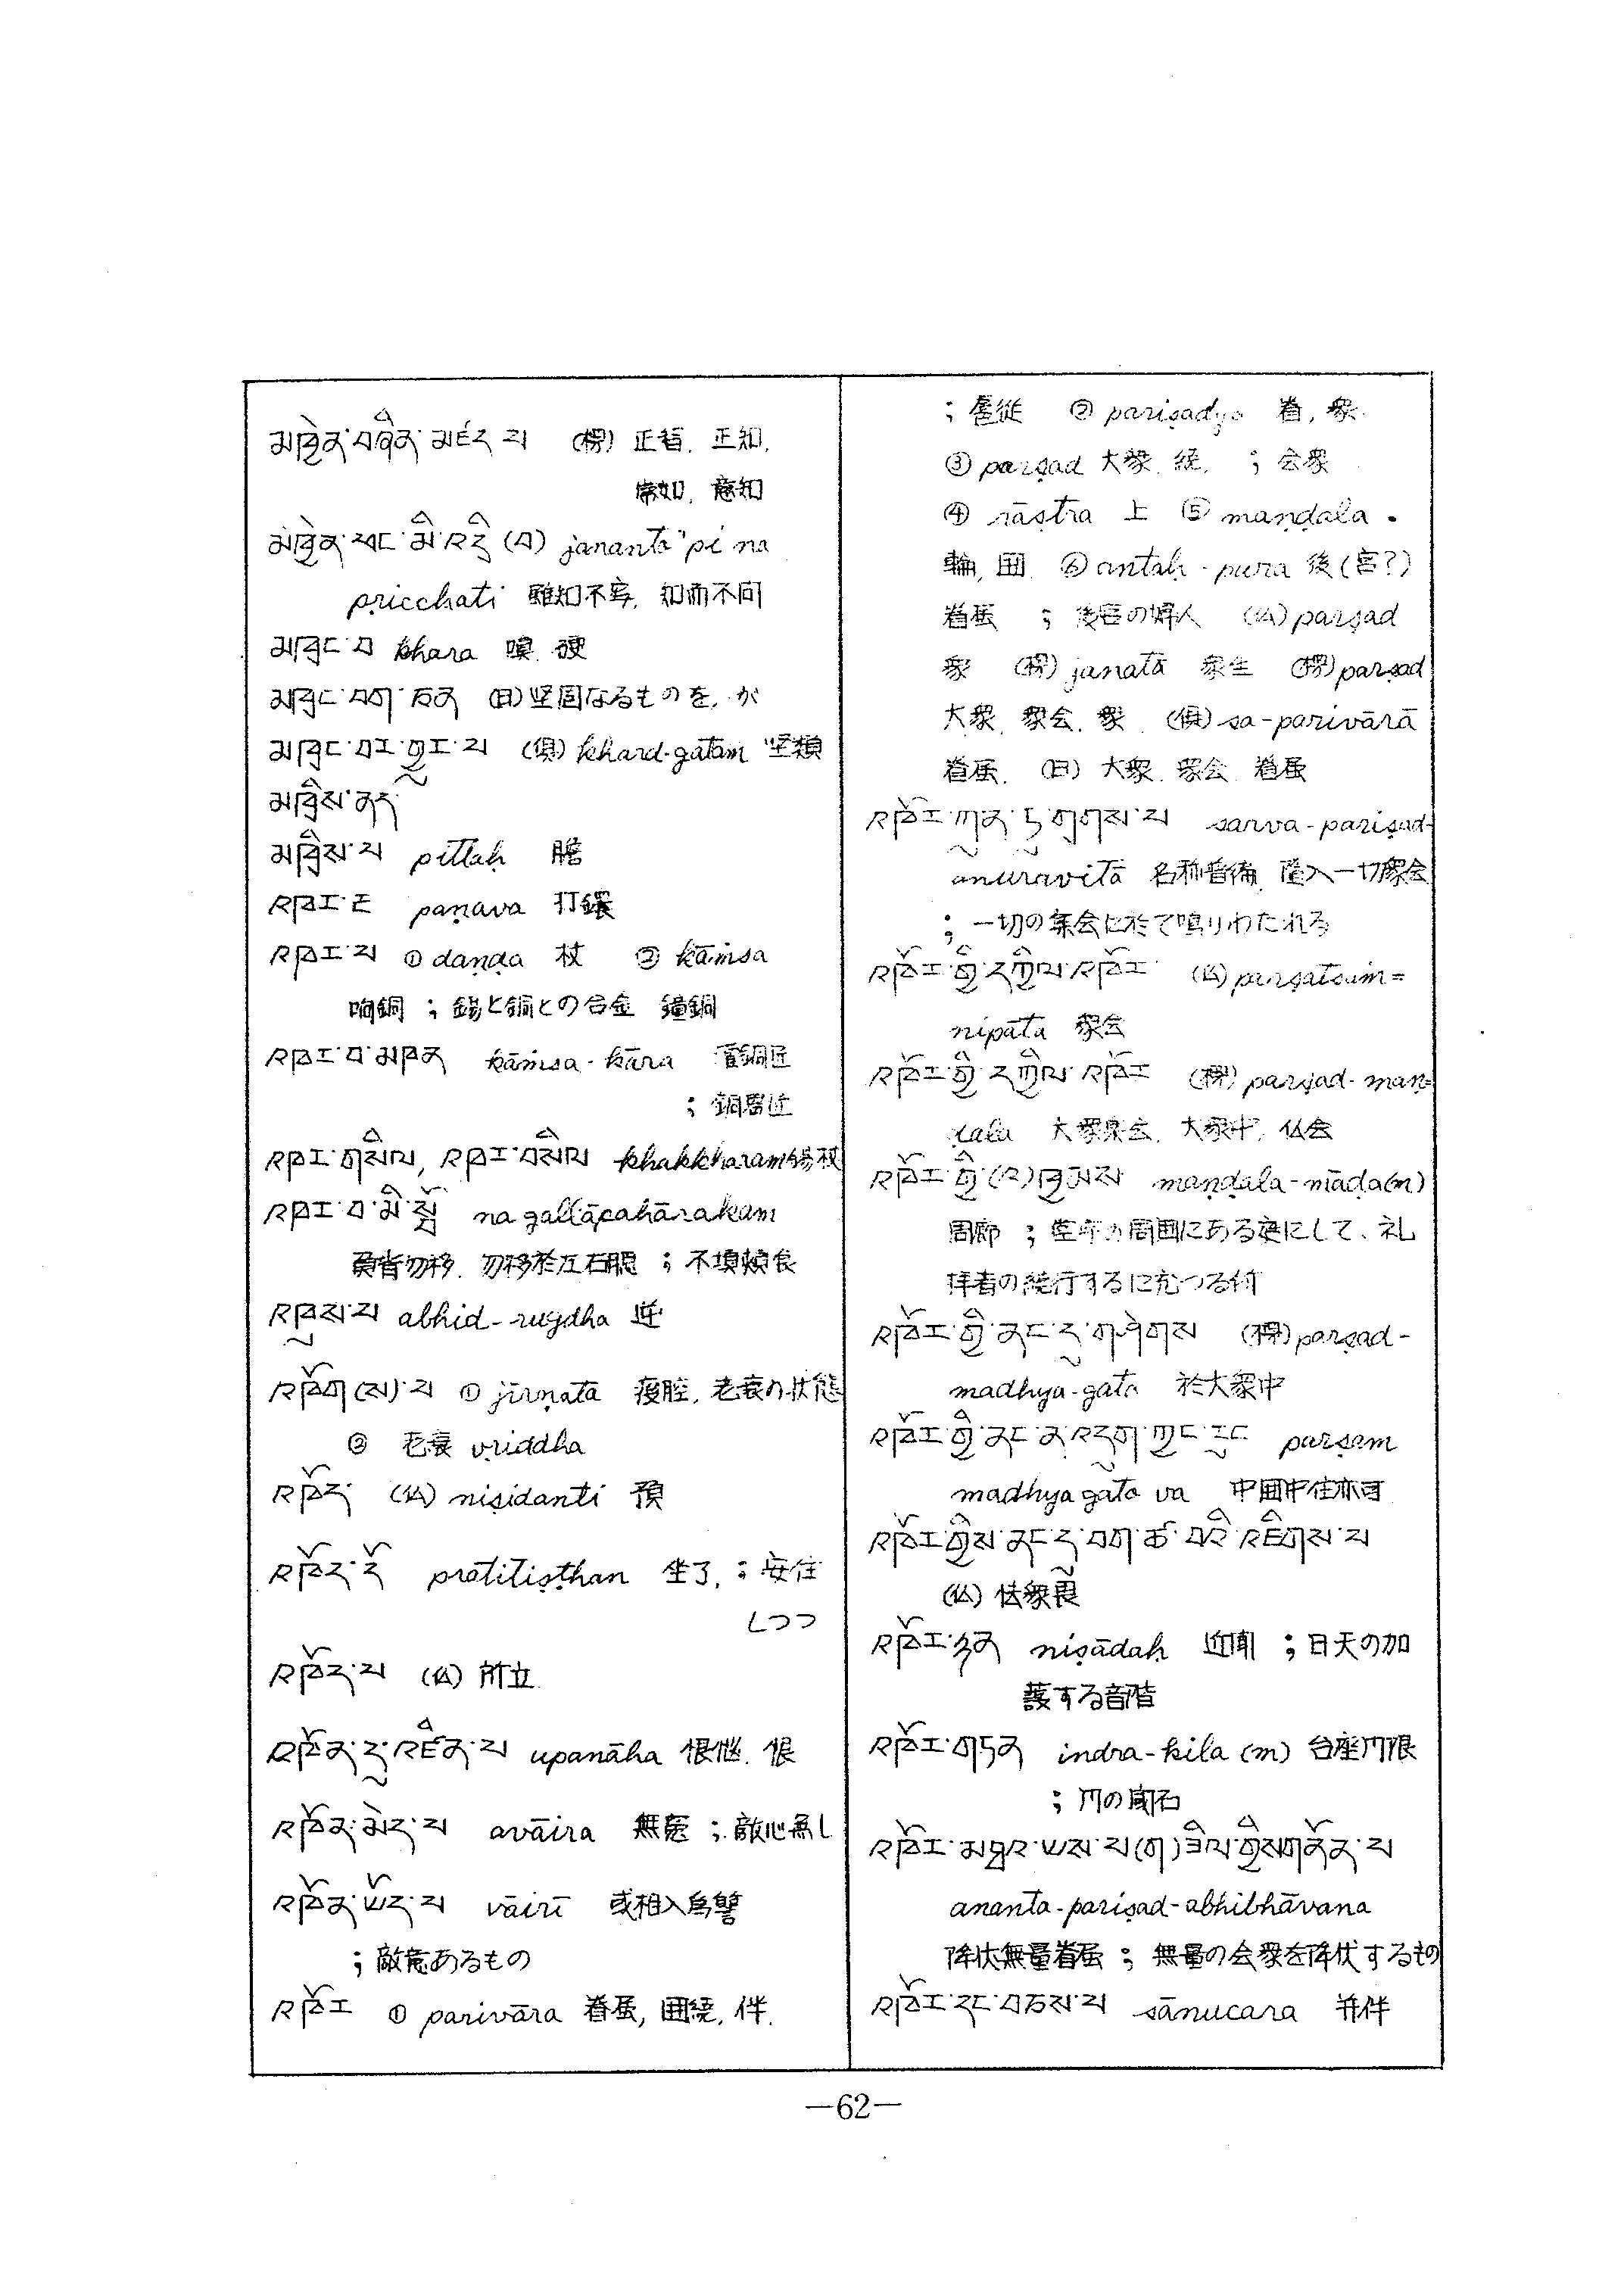 མཁྱེན་བཞིན་མཛད་པ (楞) 正智, 正知,
常如, 意知
མཁྱེན་ཡང་མི་འདྲི (口) jananta"pi na
pricchati 雖知不字, 知而不问
མཁྲང་བ khara 嗅 硬
མཁྲང་བག་ཅན (日) 坚固なるものを, か
མཁྲང་བར་གྱུར་པ (倶) khard-gatam 坚類
མཁྲིས་ནད
མཁྲིས་པ pittaḥ 膽
འཁར་ང paṇava 打鐶
འཁར་བ ① daṇḍa 杖 ② kāṁsa
响銅 ; 錫と銅との合金 鐘銅
འཁར་བ་མཁན kāṁsa-kāra 匠
; 銅器近
འཁར་གསིལ, འཁར་བསིལ khakkharam 錫杖
འཁར་བ་མི་སྤོ na gallāpahārakam
勿移, 勿移於左右腮 ; 不塡頰食
འཁུས་པ abhid-rugdha 逆
འཁོག(ས)་པ ① jīrṇatā 瘦腔, 老衰の状態
② 老衰 vriddha
འཁོད (仏) niṣidanti 預
འཁོད་དོ pratitiṣṭhan 坐了, ; 安住
しつつ
འཁོད་པ (仏) 所立
འཁོན་དུ་འཛིན་པ upanāha 恨惱, 恨
འཁོན་མེད་པ avāira 無寃 ; 敵心無し
འཁོན་ཡོད་པ vāirī 或相入為讐
; 敵意あるもの
འཁོར ① parivāra 眷属, 囲繞, 伴,
; 扈従 ② pariṣadya 眷, 衆
③ parṣad 大衆, 統, ; 会衆
④ rāṣṭra 上 ⑤ maṇḍala .
輪, 囲 ⑥ antaḥ-pura 後(宮?)
眷属 ; 後宮の婦人 (仏) parṣad
衆 (楞) janatā 衆生 (楞) parṣad
大衆, 衆会, 衆 (倶) sa-parivārā
眷属, (日) 大衆, 衆会 眷属
འཁོར་ཀུན་ཏུ་གྲགས་པ sarva-pariṣad-
anuravitā 名称普備, 入一切衆会
; 一切の集会に於て鳴りわたれる
འཁོར་གྱི་དཀྱིལ་འཁོར (仏) parṣatsaṁ=
nipāta 衆会
འཁོར་གྱི་དཀྱིལ་འཁོར (楞) parṣad-maṇ-
ḍala 大衆集会, 大衆中, 仏会
འཁོར་གྱི་(འ)ཁྱམས maṇḍala-māḍa(m)
周廊 ; 周囲にある庭にして、礼
拝者の繞行するに充つる
འཁོར་གྱི་ནང་དུ་གཤེགས (楞) parṣad-
madhya-gata 於大衆中
འཁོར་གྱི་ནང་ན་འདུག་ཀྱང་རུང parṣam
madhya gato va 中囲中住亦可
འཁོར་གྱིས་ནང་དུ་བག་ཚ་བའི་འཇིགས་པ
(仏) 怯衆畏
འཁོར་ཉན niṣādaḥ 近聞 ; 日天の加
護する音階
འཁོར་གཏན indra-kila (m) 台座門限
; 門の閾石
འཁོར་མཐའ་ཡས་པ(ག)ཟིལ་གྱིས་གནོན་པ
ananta-pariṣad-abhibhāvana
降伏無量眷属 ; 無量の会衆を降伏するもの
འཁོར་དང་བཅས་པ sānucara 并伴
—62—